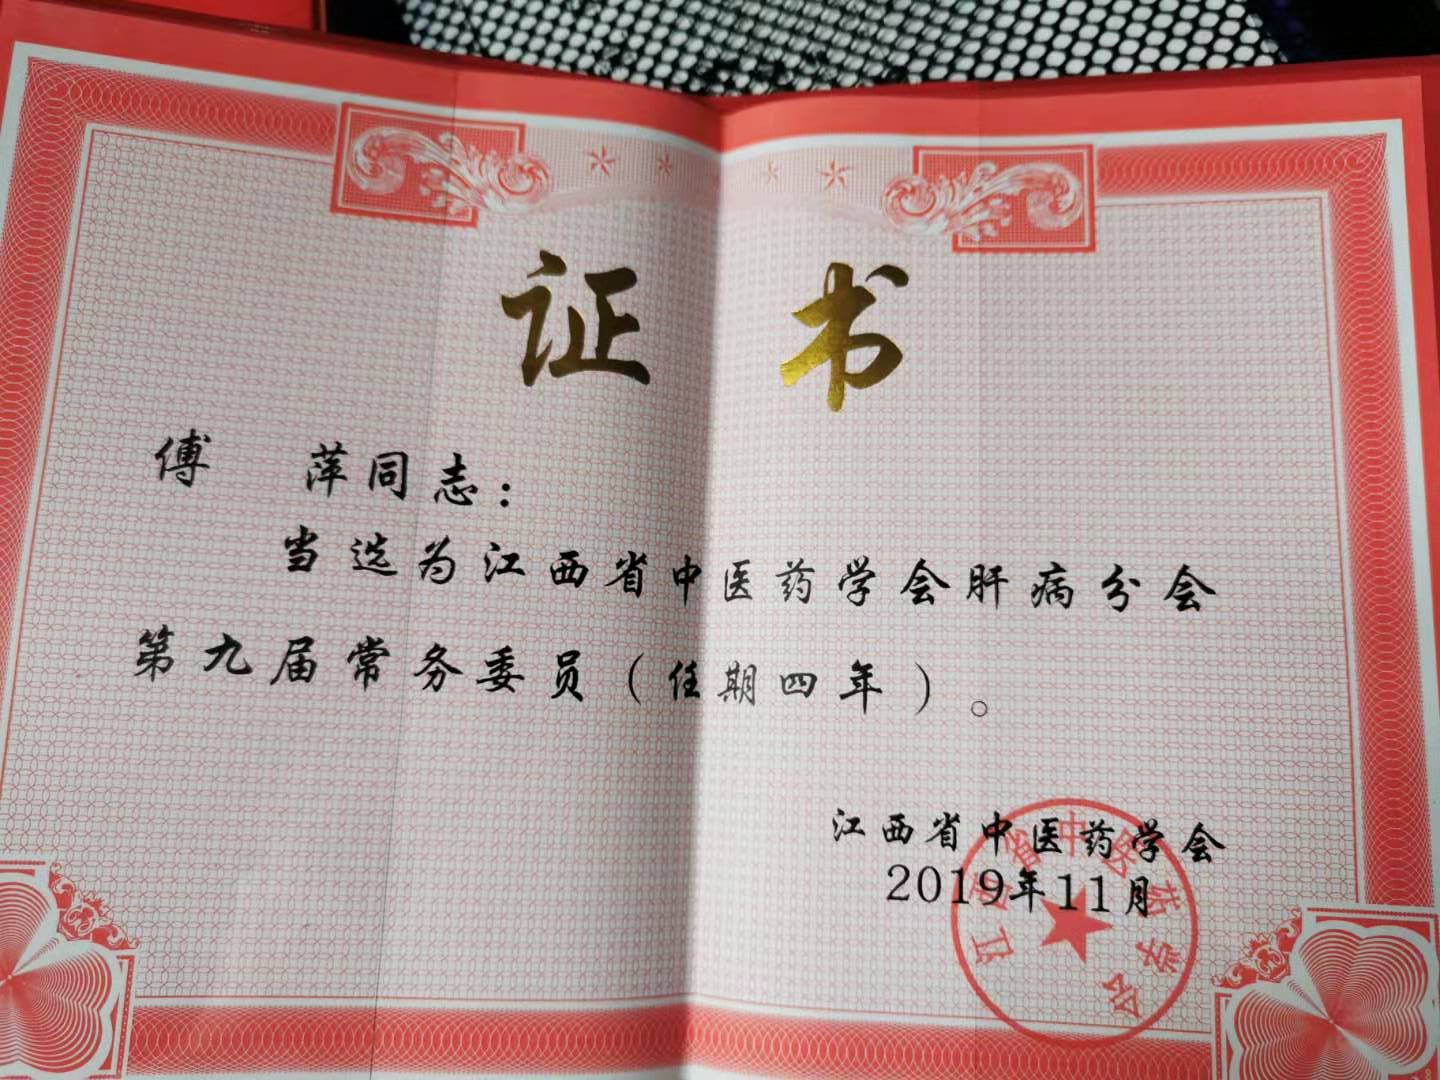 证书
傅 萍同志：
当选为江西省中医药学会肝病分会
第九届常务委员（任期四年）。
江西省中医药学会
2019年11月
江西省中医药学会